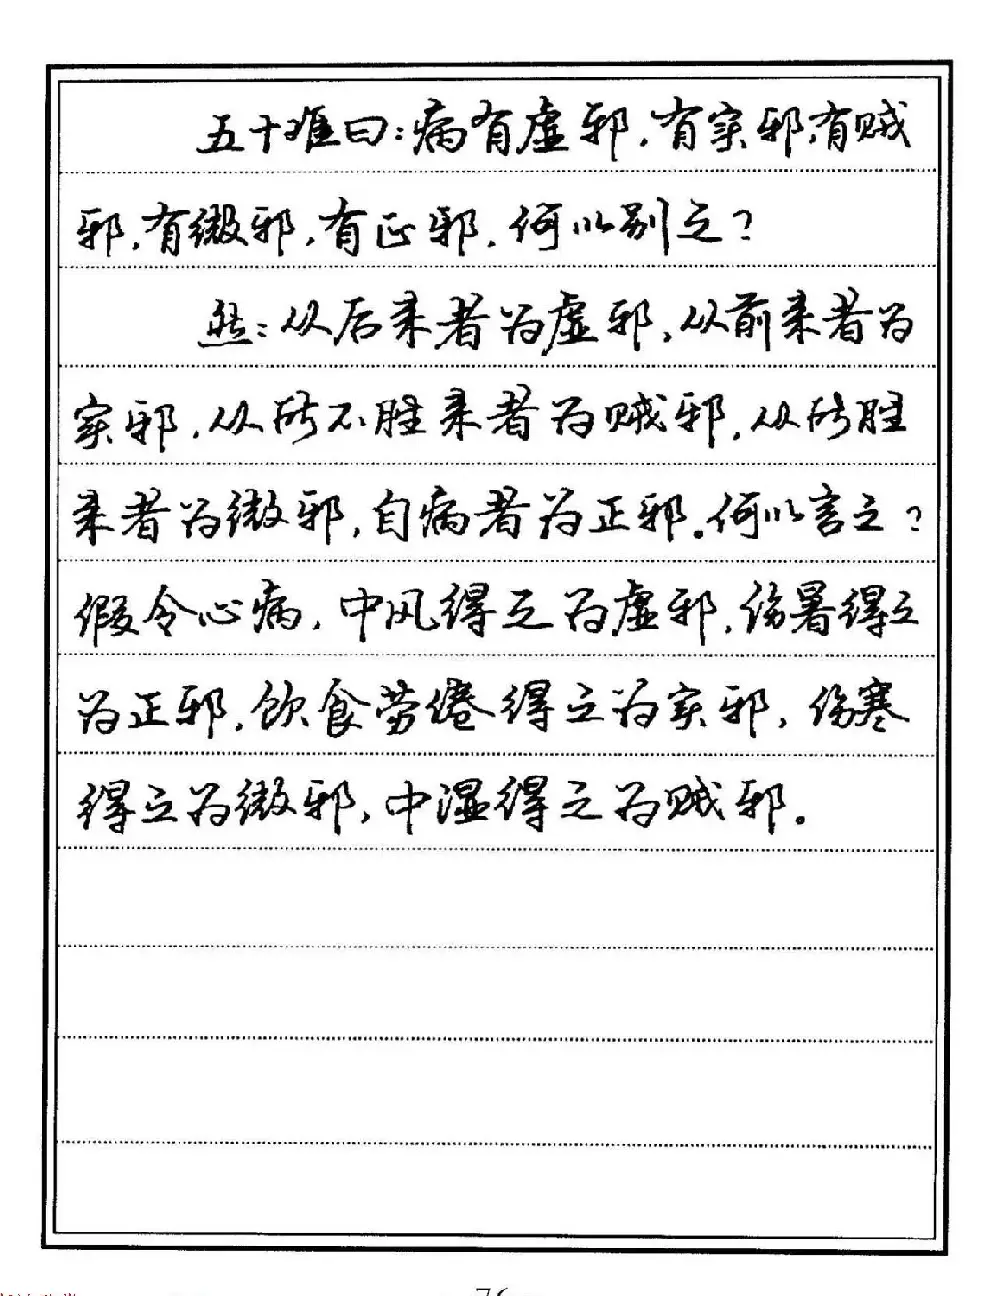 五十难曰：病有虚邪，有实邪，有贼
邪，有微邪，有正邪，何以别之？
然：从后来者为虚邪，从前来者为
实邪，从所不胜来者为贼邪，从所胜
来者为微邪，自病者为正邪。何以言之？
假令心病，中风得之为虚邪，伤暑得之
为正邪，饮食劳倦得之为实邪，伤寒
得之为微邪，中湿得之为贼邪。
76